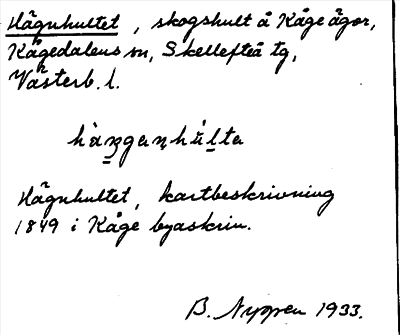 Hägnhultet, skogshult å Kåge ägor,
Kågedalens sn, Skellefteå tg,
Västerb. l.
hàŋganhúlta
Hägnhultet, kartbeskrivning
1849 i Kåge byaskrin.
B. Nyman 1933.